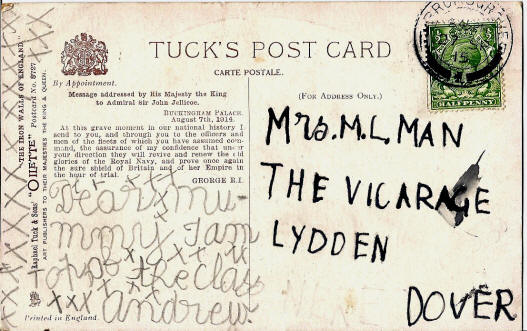 TUCK'S POST CARD
CARTE POSTALE.
By Appointment.
Message addressed by His Majesty the King
to Admiral Sir John Jellicoe.
BUCKINGHAM PALACE.
August 7th, 1914.
At this grave moment in our national history I
send to you, and through you to the officers and
men of the fleets of which you have assumed com-
mand, the assurance of my confidence that under
your direction they will revive and renew the old
glories of the Royal Navy, and prove once again
the sure shield of Britain and of her Empire in
the hour of trial.
GEORGE R.I.
Dear mu-
mmy I am
top of the class
xxx andrew.
Printed in England.
Raphael Tuck & Sons' "OILETTE" Postcard No. 8727
"THE IRON WALLS OF ENGLAND."
ART PUBLISHERS TO THEIR MAJESTIES THE KING & QUEEN.
(FOR ADDRESS ONLY.)
Mrs. M.L. MAN
THE VICARAGE
LYDDEN
DOVER
HALFPENNY
15